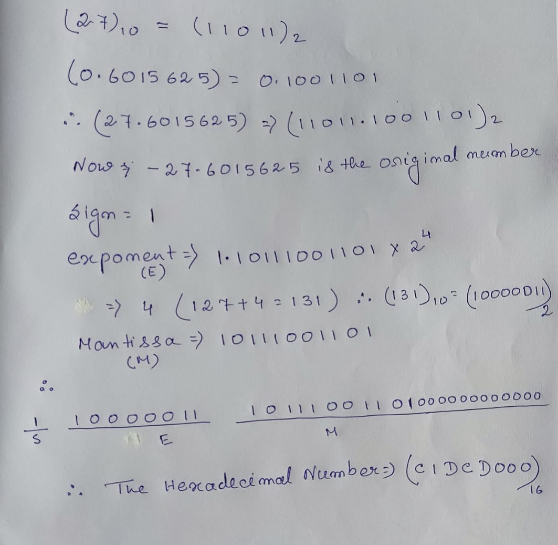 (27)₁₀ = (11011)₂
(0.6015625) = 0.1001101
∴ (27.6015625) ⇒ (11011.1001101)₂
Now ; -27.6015625 is the original number
Sign = 1
exponent ⇒ 1.10111001101 × 2⁴
(E)
⇒ 4 (127+4 = 131) ∴ (131)₁₀ = (10000011)₂
Mantissa ⇒ 10111001101
(M)
∴
1 10000011 10111001101000000000000
S E M
∴ The Hexadecimal Number ⇒ (C1DCD000)₁₆